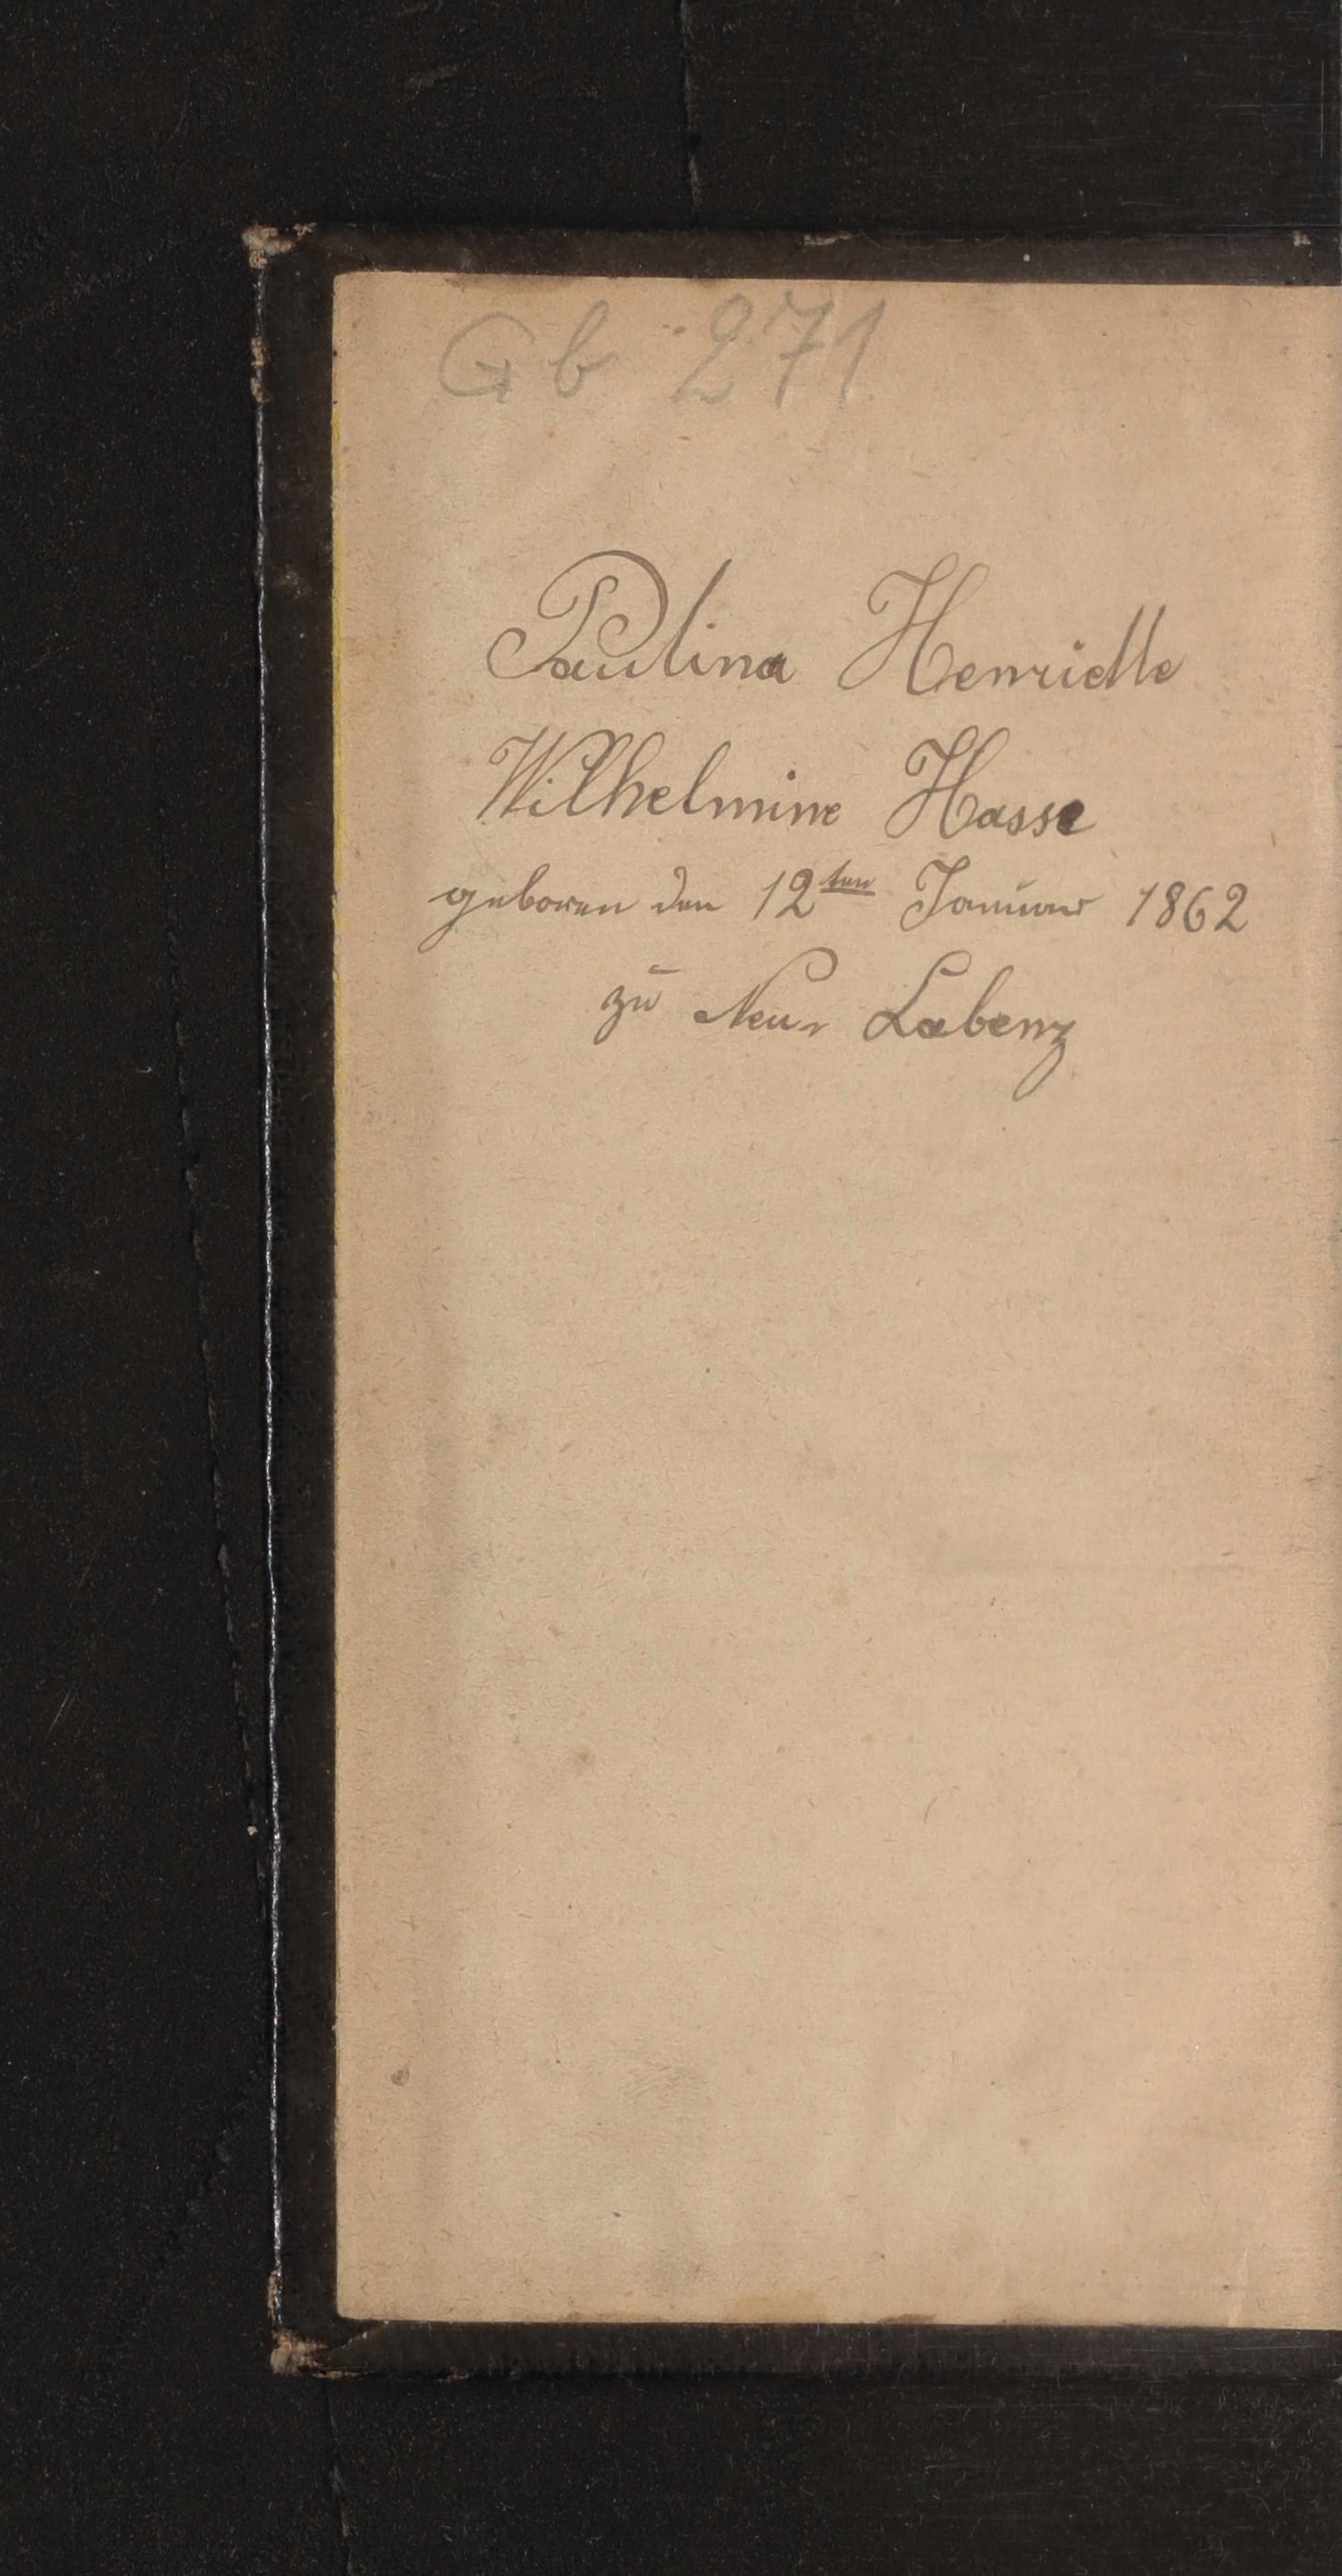 Gb 271
Paulina Henriette
Wilhelmine Hasse
geboren den 12ten Januar 1862
zu Neu- Labenz